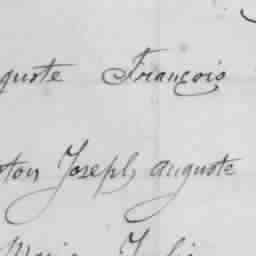 guste François
ton Joseph auguste
Marie Juli